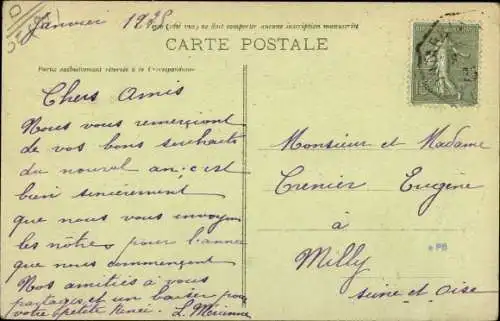 Janvier 1925
(côté vu) ne doit comporter aucune inscription manuscrite
CARTE POSTALE
Partie exclusivement réservée à la Correspondance
Chers Amis
Nous vous remerçiont
de vos bons souhaits
du nouvel an, c'est
bien sincèrement
que nous vous envoyon
les nôtres pour l'année
que nous commençont
Nos amitiés à vous
partagés et un baiser pour
votre petite Renée. L.
Monsieur et Madame
Crenier Eugène
à
Milly
Seine et Oise
PB